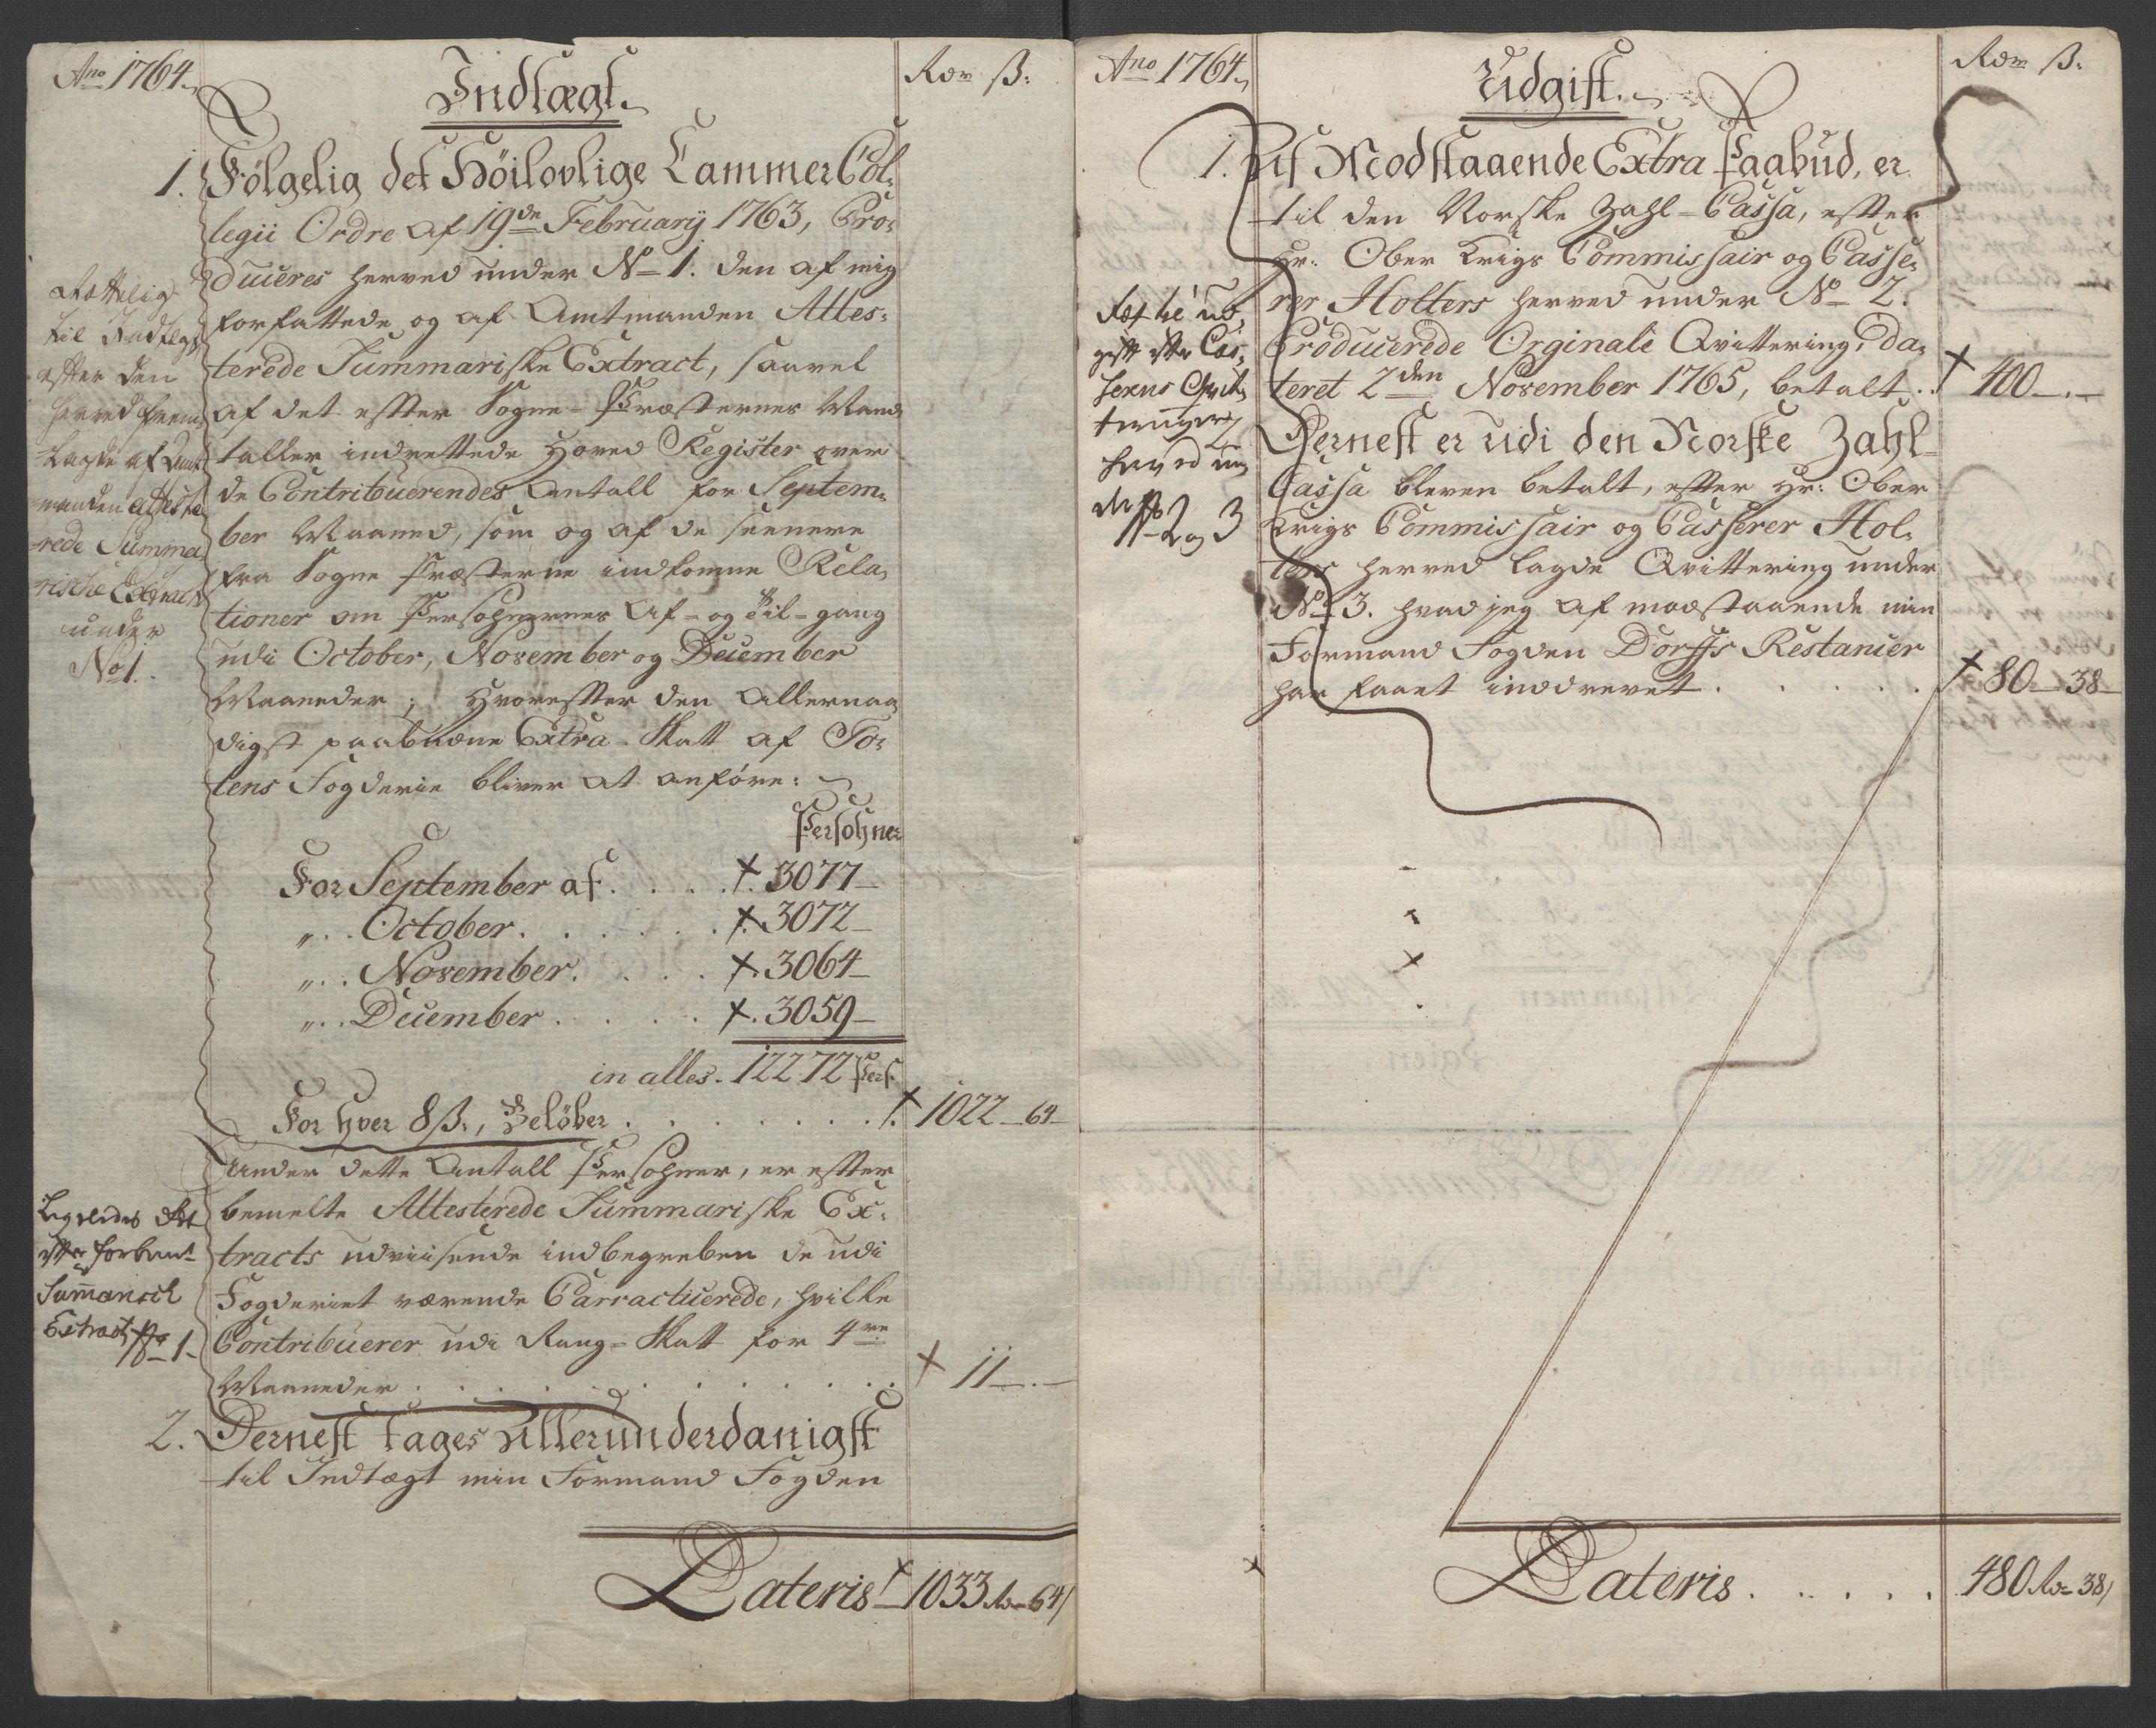 Ano 1764.
Indtægt.
Rdr ß:
1. Fölgelig det Höilovlige Cammer Col:
legii Ordre af 19de Februarij 1763, Pro:
duceres herved under No 1. den af mig
forfattede og af Amtmanden Attes:
terede Summariske Extract, saavel
af det efter Sogne-Præsternes Mand
taller indrettede Hoved Register over
de Contribuerendes Antall for Septem:
ber Maaned, som og af de seenere
fra Sogne Præsterne indkomne Rela,
tioner om Persohnernes Af- og Til-gang
udi October, November og December
Maaneder; Hvorefter den Allernaa
digst paabudne Extra-Skatt af To:
tens Fogderie bliver at anföre:
til Indtægt
efter den
herved frem
lagde af Amt
manden atteste
rede Summa
rische Extract
under
No 1.
Persohner
For September af . . . . . 3077
„ . . October . . . . . . 3072
„ . . November . . . . . 3064
„ . . December . . . . . 3059
in alles. 12272 Pers
For hver 8 ß, Belöber . . . . . . . 1022 - 64
Under dette Antall Persohner, er efter
bemelte Attesterede Summariske Ex:
tracts udviisende indbegreben de udi
Fogderiet værende Carracticerede, hvilke
Contribuerer udi Rang-Skatt for 4re
Maaneder . . . . . . . . . . 11 - . -
Ligeledes
efter forbent
Summarisch
Extract No 1
2. Dernest tages Allerunderdanigst
til Indtægt min Formand Fogden
Lateris 1033 Rdr 64
Ano 1764.
Udgift.
Rdr ß:
1. Af Modstaaende Extra Paabud, er
til den Norske Zahl-Cassa, efter
Hr: Ober Krigs Commissair og Casse:
rer Holters herved under No 2.
Producerede Orginale Qvittering, Da:
teret 2den November 1765, betalt . . 400 - . -
Dernest er udi den Norske Zahl
Cassa bleven betalt, efter Hr: Ober
Krigs Commissair og Casserer Hol:
ters herved lagde Qvittering under
No 3. hvad jeg af modstaaende min
Formand Fogden Dorffs Restancer
har faaet inddrevet . . . . . 80 - 38
gift efter Cas:
serens Qvit
teringer
herved un
der
No 2 og 3
Lateris . . . . . 480 Rdr 38